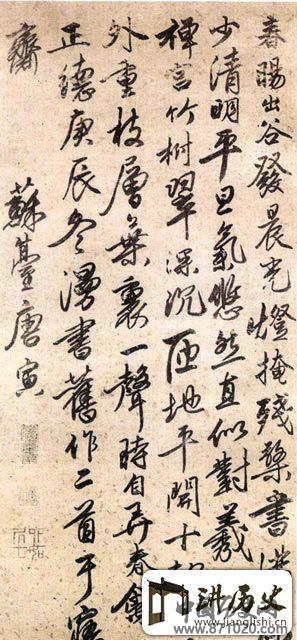 春暘出谷發晨光燈掩殘檠書
少清明平旦氣悠然直似對羲
禅言竹樹翠深沉匝地平開十
外重枝層葉裏一聲時自弄春禽
正德庚辰冬漫書舊作二首于
齋
蘇臺唐寅
讲历史
www.jianglishi.cn
www.871020.com